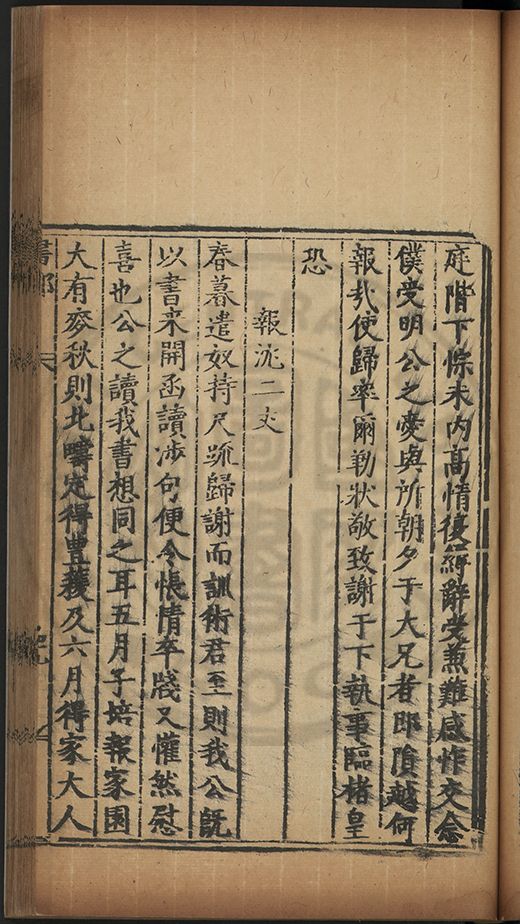 庭階下悰未内高情復縟辭受兼難感怍交念
僕受明公之愛與所朝夕于大兄者即隕越何
報哉使歸率爾勒狀敬致謝于下執事臨楮皇
恐
報沈二丈
春暮遣奴持尺疏歸謝而訓術君至則我公旣
以書来開函讀涉句便令悵情卒牋又懽然慰
喜也公之讀我書想同之耳五月子培報家園
大有麥秋則北疇定得豊穫及六月得家大人